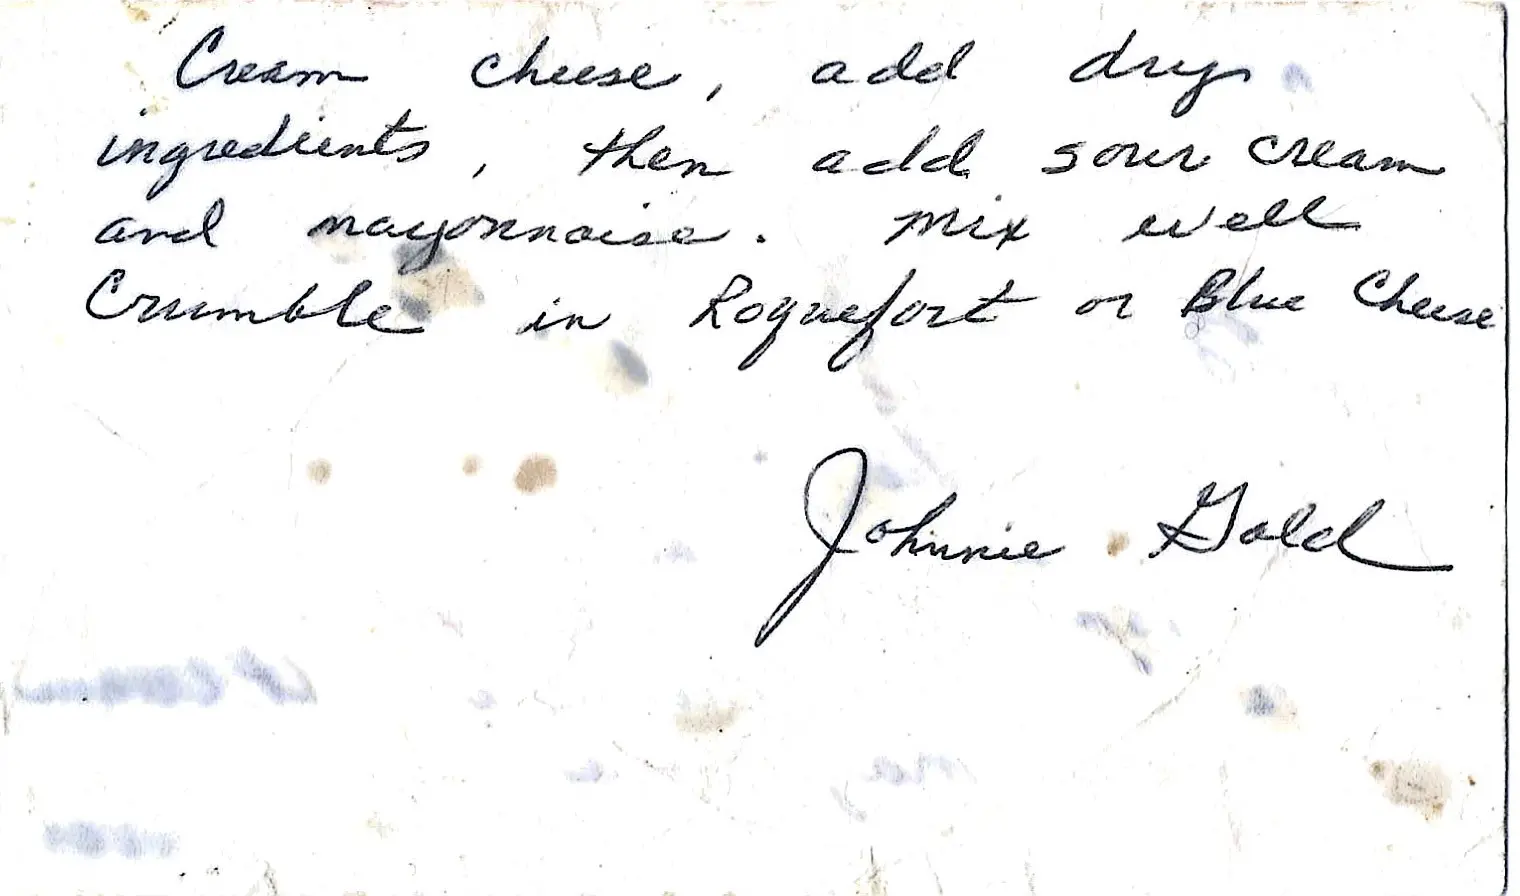 Cream cheese, add dry
ingredients, then add sour cream
and mayonnaise. Mix well
Crumble in Roquefort or Blue Cheese
Johnnie Gold